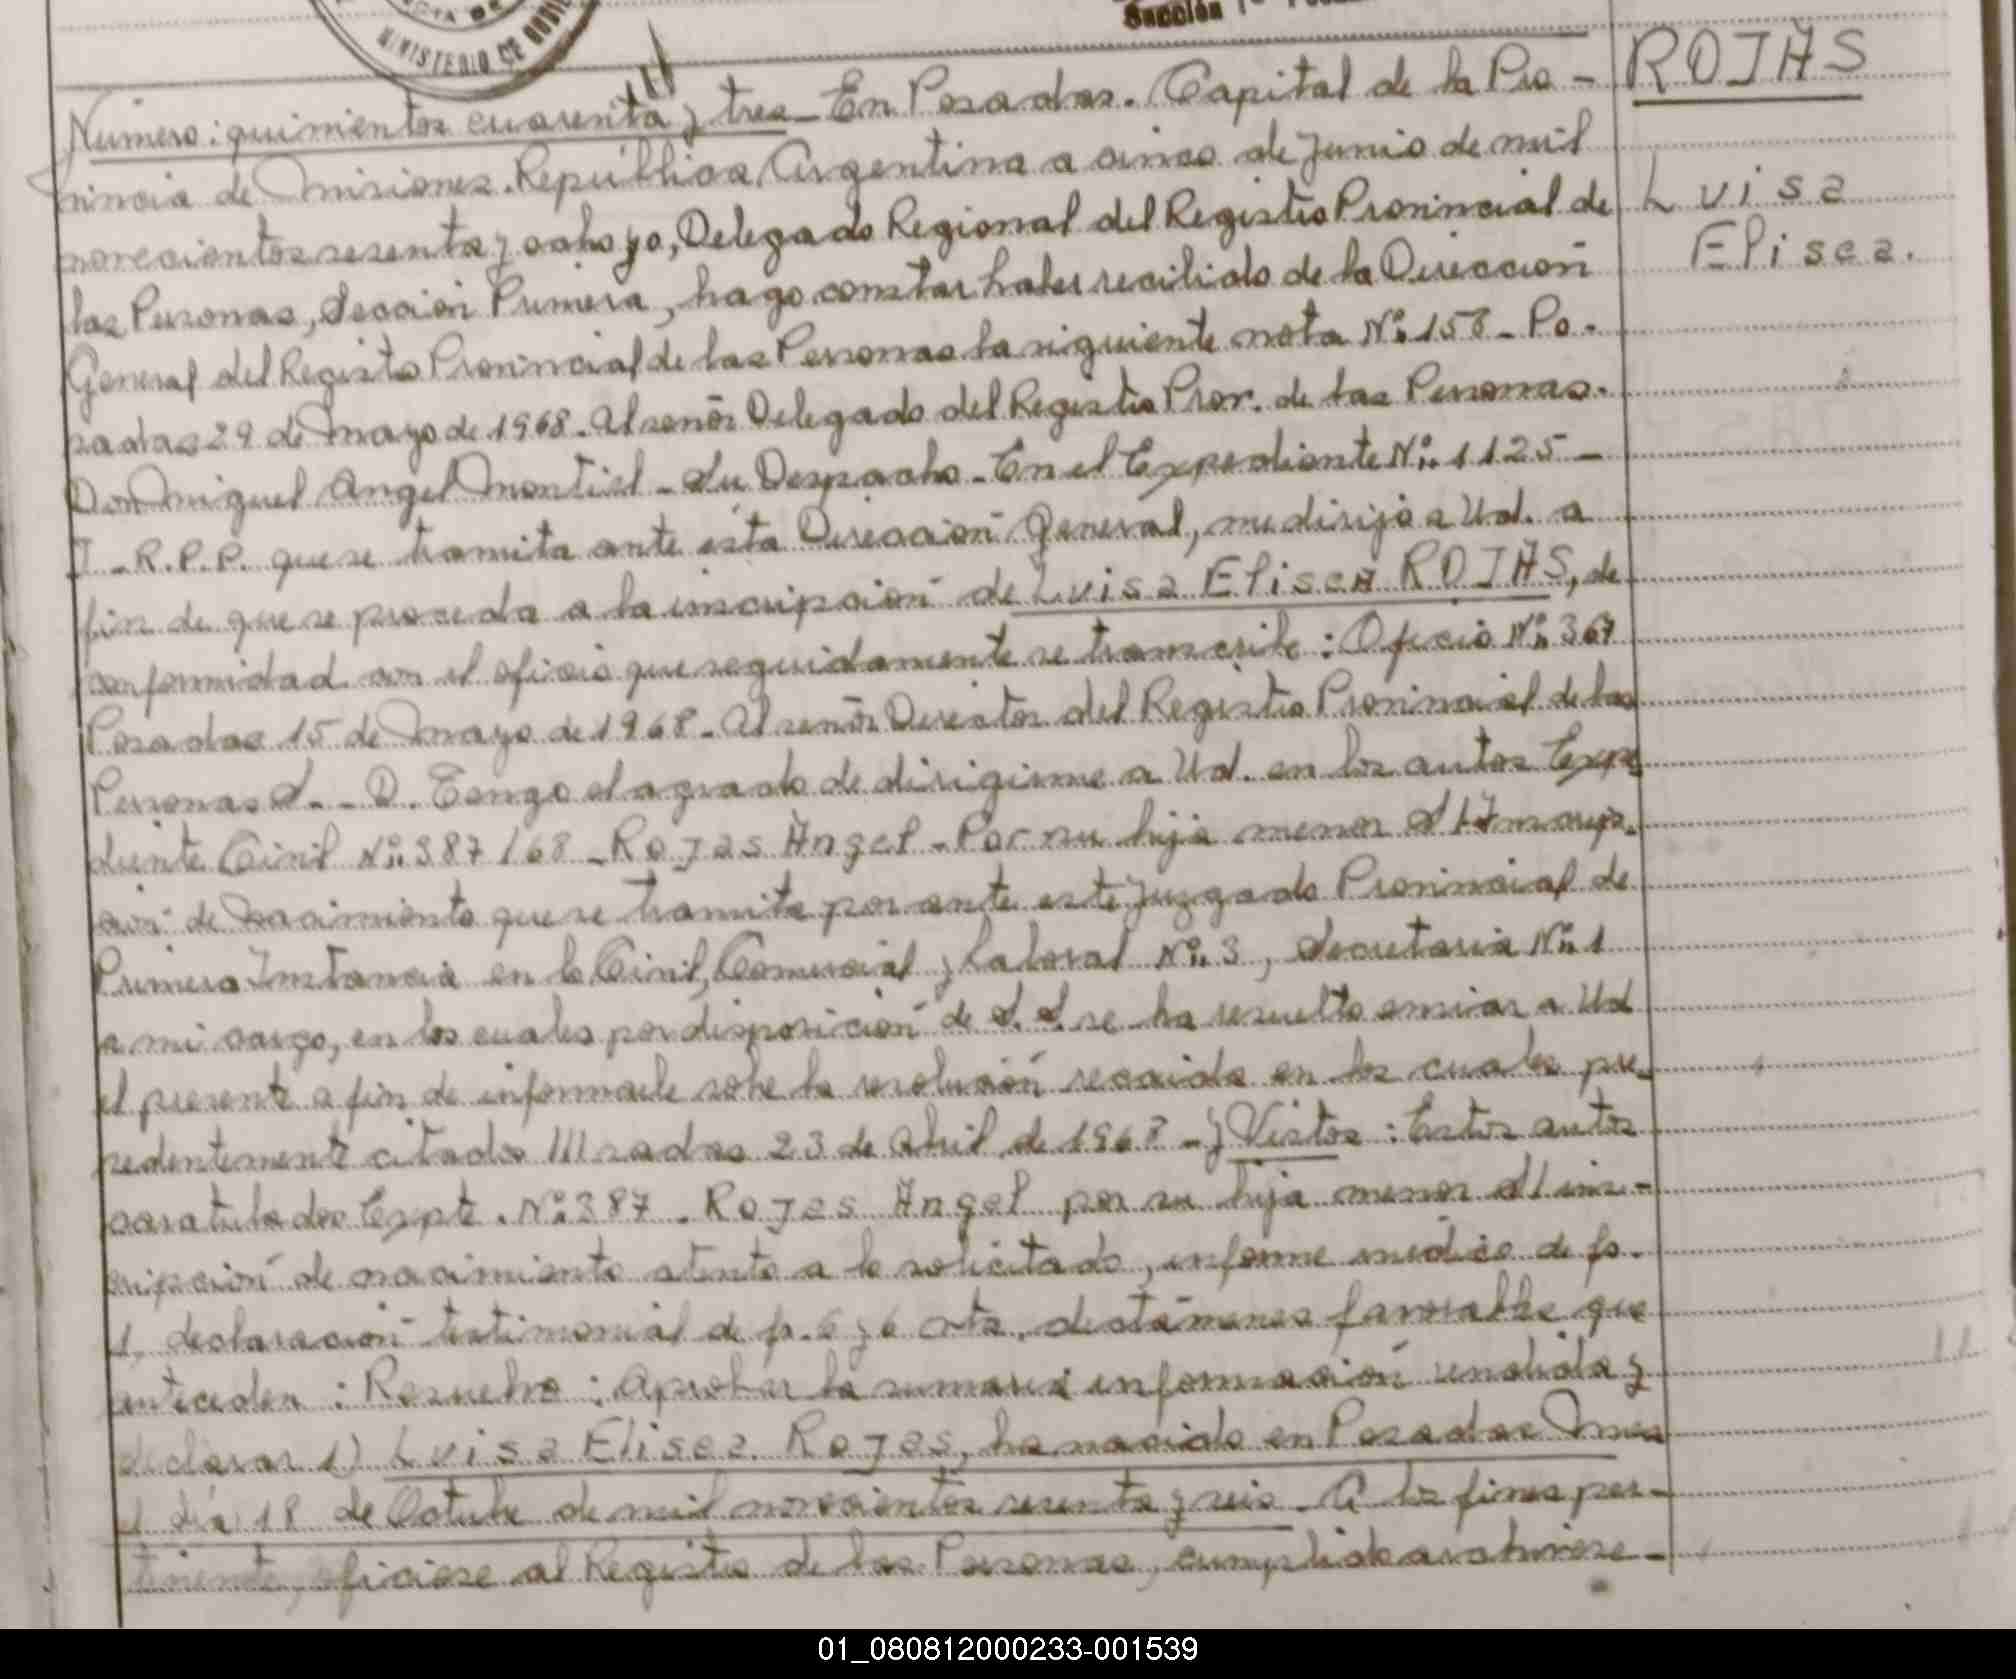 MINISTERIO DE GOBIE
Sección 1ª
Número: quinientos cuarenta y tres - En Posadas. Capital de la Pro -
vincia de Misiones. República Argentina a cinco de Junio de mil
novecientos sesenta y ocho yo, Delegado Regional del Registro Provincial de
las Personas, Sección Primera, hago constar haber recibido de la Dirección
General del Registro Provincial de las Personas la siguiente nota Nº 158 - Po.
sadas 29 de Mayo de 1968. Al senõr Delegado del Registro Prov. de las Personas.
Don Miguel Angel Montiel - Su Despacho - En el Expediente Nº 1125 -
I - R.P.P. que se tramita ante esta Dirección General, me dirijo a Ud. a
fin de que se proceda a la inscripción de Luisa Elisea ROJAS, de
conformidad con el oficio que seguidamente se transcribe: Oficio Nº 367
Posadas 15 de Mayo de 1968. Al senõr Director del Registro Provincial de las
Personas S. - D. Tengo el agrado de dirigirme a Ud. en los autos Expe
diente Civil Nº 387/68 - Rojas Angel - Por su hija menor S/ Inscrip.
ción de nacimiento que se tramita por ante este Juzgado Provincial de
Primera Instancia en lo Civil, Comercial y Laboral Nº 3, Secretaria Nº 1
a mi cargo, en los cuales por disposición de S.S. se ha resuelto enviar a Ud
el presente a fin de informarle sobre la resolución recaida en los cuales pre-
cedentemente citados ///sadas 23 de Abril de 1968 - y Vistos: Estos autos
caratulados Expte. Nº 387. Rojas Angel por su hija menor S/ ins-
cripción de nacimiento atento a lo solicitado, informe médico de fs.
1, declaración testimonial de fs. 6 y 6 vta, dictámenes favorables que
anteceden: Resuelvo: Aprobar la sumaria información rendida y
declarar 1) Luisa Elisea Rojas, ha nacido en Posadas Mnes
el día 18 de Octubre de mil novecientos sesenta y seis - A los fines per-
tinente, oficiese al Registro de las Personas, cumplido archivese -
ROJAS
Luisa
Elisea.
01_080812000233-001539